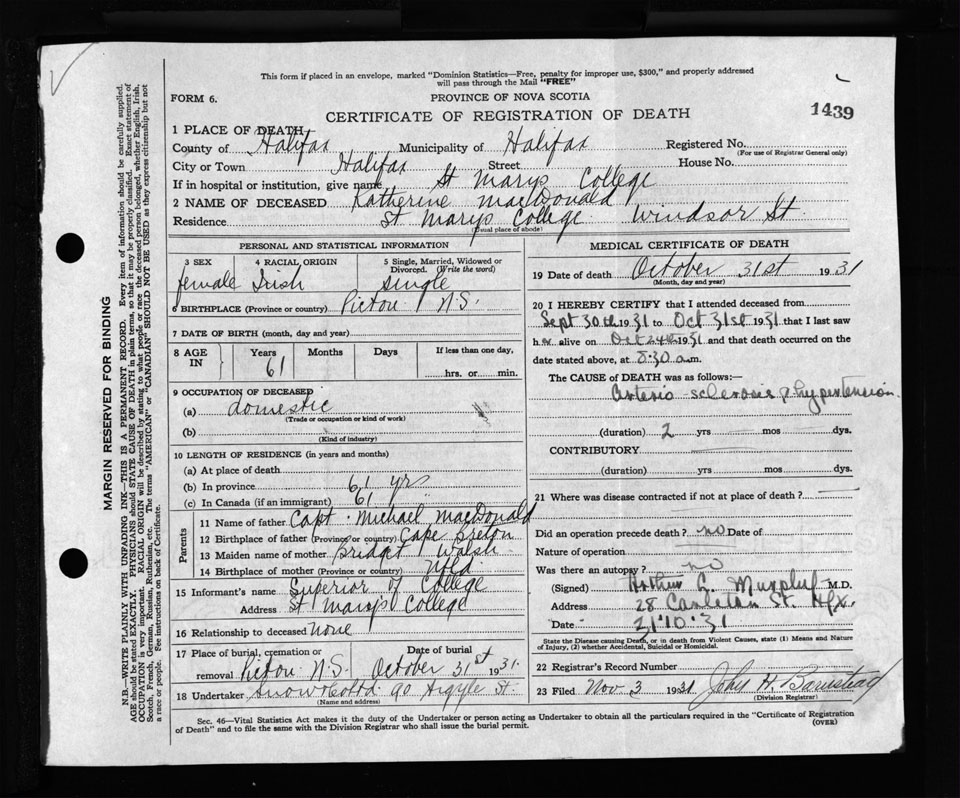 This form if placed in an envelope, marked "Dominion Statistics—Free, penalty for improper use, $300," and properly addressed
will pass through the Mail "FREE"
FORM 6.
PROVINCE OF NOVA SCOTIA
CERTIFICATE OF REGISTRATION OF DEATH
1439
1 PLACE OF DEATH
County of Halifax Municipality of Halifax Registered No.
(For use of Registrar General only)
City or Town Halifax Street House No.
If in hospital or institution, give name St Marys College
2 NAME OF DECEASED Katherine macDonald
Residence St Marys College Windsor St.
(Usual place of abode)
PERSONAL AND STATISTICAL INFORMATION
3 SEX 4 RACIAL ORIGIN 5 Single, Married, Widowed or Divorced. (Write the word)
female Irish Single
6 BIRTHPLACE (Province or country) Pictou N.S.
7 DATE OF BIRTH (month, day and year)
8 AGE IN Years Months Days If less than one day,
61 hrs. or min.
9 OCCUPATION OF DECEASED
(a) domestic
(Trade or occupation or kind of work)
(b)
(Kind of industry)
10 LENGTH OF RESIDENCE (in years and months)
(a) At place of death
(b) In province 61 yrs
(c) In Canada (if an immigrant) 61 "
Parents
11 Name of father Capt. Michael macDonald
12 Birthplace of father (Province or country) Cape Breton
13 Maiden name of mother Bridget Walsh
14 Birthplace of mother (Province or country) Nfld
15 Informant's name Superior of College
Address St Mary's College
16 Relationship to deceased None
17 Place of burial, cremation or removal Pictou N.S. Date of burial October 31st 1931
18 Undertaker Snow & Co Ltd 90 Argyle St.
(Name and address)
MEDICAL CERTIFICATE OF DEATH
19 Date of death October 31st 1931
(Month, day and year)
20 I HEREBY CERTIFY that I attended deceased from
Sept 30th 1931 to Oct 31st 1931 that I last saw
h er alive on Oct 24th 1931 and that death occurred on the
date stated above, at 8:30 a.m.
The CAUSE of DEATH was as follows:—
arterio-sclerosis & hypertension.
(duration) 2 yrs mos dys.
CONTRIBUTORY
(duration) yrs mos dys.
21 Where was disease contracted if not at place of death?
Did an operation precede death? no Date of
Nature of operation
Was there an autopsy? no
(Signed) Arthur L. Murphy M.D.
Address 28 Carleton St. Hfx.
Date 31.10.31
State the Disease causing Death, or in death from Violent Causes, state (1) Means and Nature
of Injury, (2) whether Accidental, Suicidal or Homicidal.
22 Registrar's Record Number
23 Filed Nov 3 1931 John H. Barnstead
(Division Registrar)
Sec. 46—Vital Statistics Act makes it the duty of the Undertaker or person acting as Undertaker to obtain all the particulars required in the "Certificate of Registration
of Death" and to file the same with the Division Registrar who shall issue the burial permit.
(OVER)
MARGIN RESERVED FOR BINDING
N.B.—WRITE PLAINLY WITH UNFADING INK—THIS IS A PERMANENT RECORD. Every item of information should be carefully supplied.
AGE should be stated EXACTLY. PHYSICIANS should STATE CAUSE OF DEATH in plain terms, so that it may be properly classified. Exact statement of
OCCUPATION is very important. RACIAL ORIGIN will be described by stating to what people or race the deceased person belonged, whether English, Irish,
Scotch, French, German, Russian, Ruthenian, etc. The terms "AMERICAN" or "CANADIAN" SHOULD NOT BE USED as they express citizenship but not
a race or people. See instructions on back of Certificate.